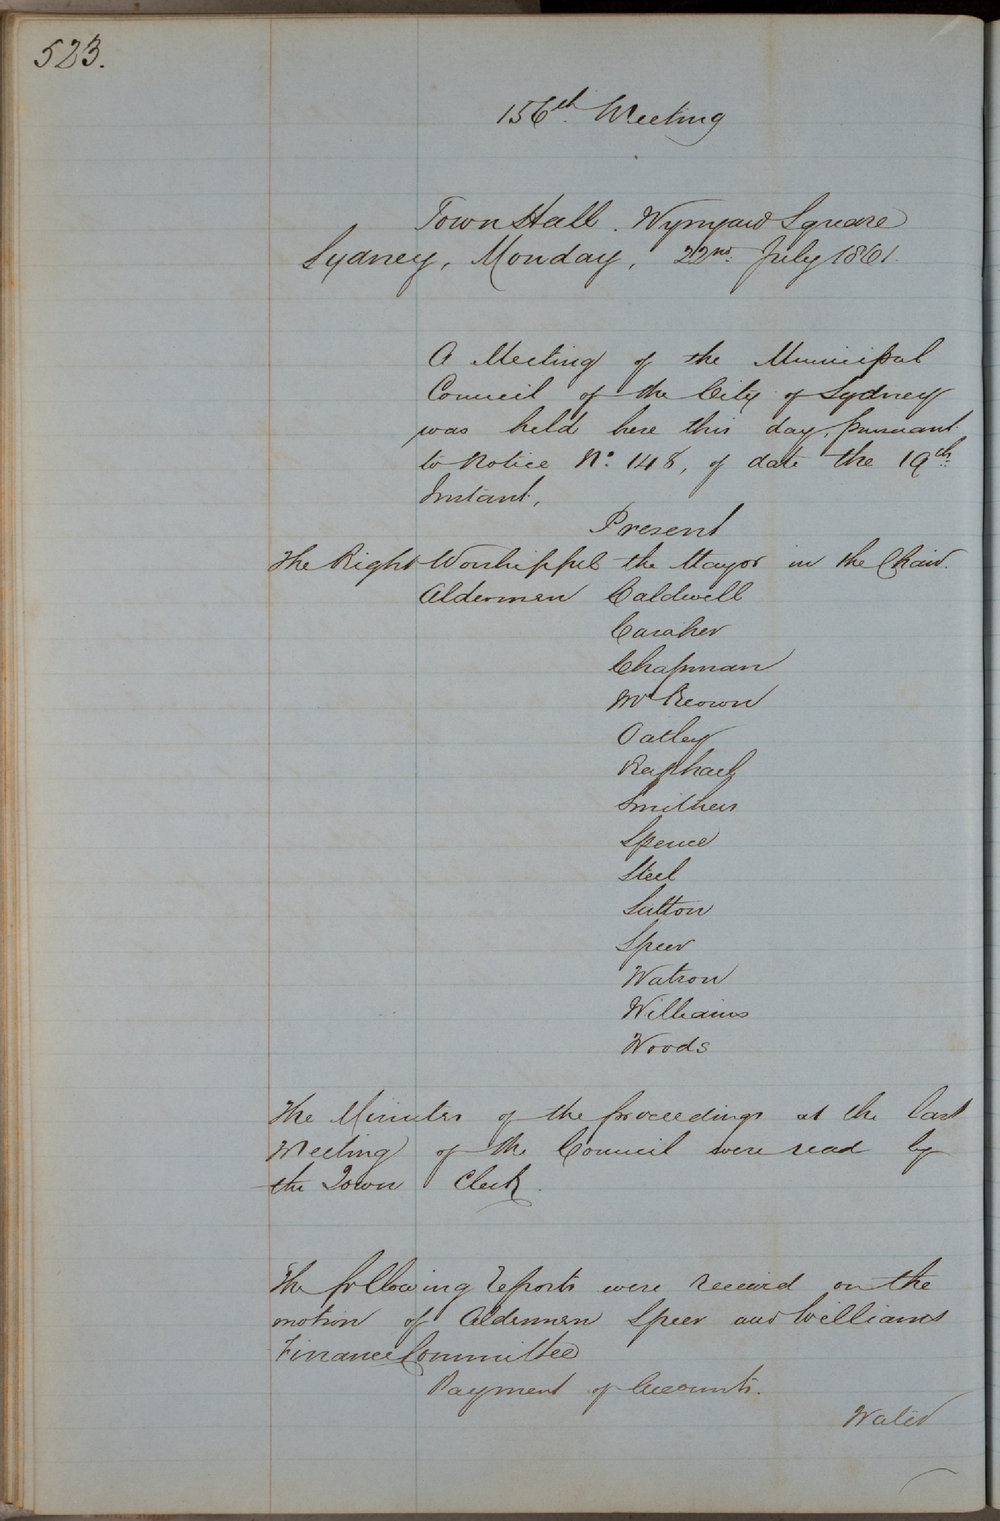 523.
156th. Meeting
Town Hall. Wynyard Square
Sydney, Monday, 22nd. July 1861.
A Meeting of the Municipal
Council of the City of Sydney
was held here this day, pursuant
to Notice No. 148, of date the 19th.
Instant,
Present
The Right Worshipful the Mayor in the Chair.
Aldermen Caldwell
Caraher
Chapman
McKeown
Oatley
Raphael
Smithers
Spence
Steel
Sutton
Speer
Watson
Williams
Woods
The Minutes of the proceedings at the last
Meeting of the Council were read by
the Town Clerk.
The following reports were received on the
motion of Aldermen Speer and Williams
Finance Committee
Payment of Accounts.
Water